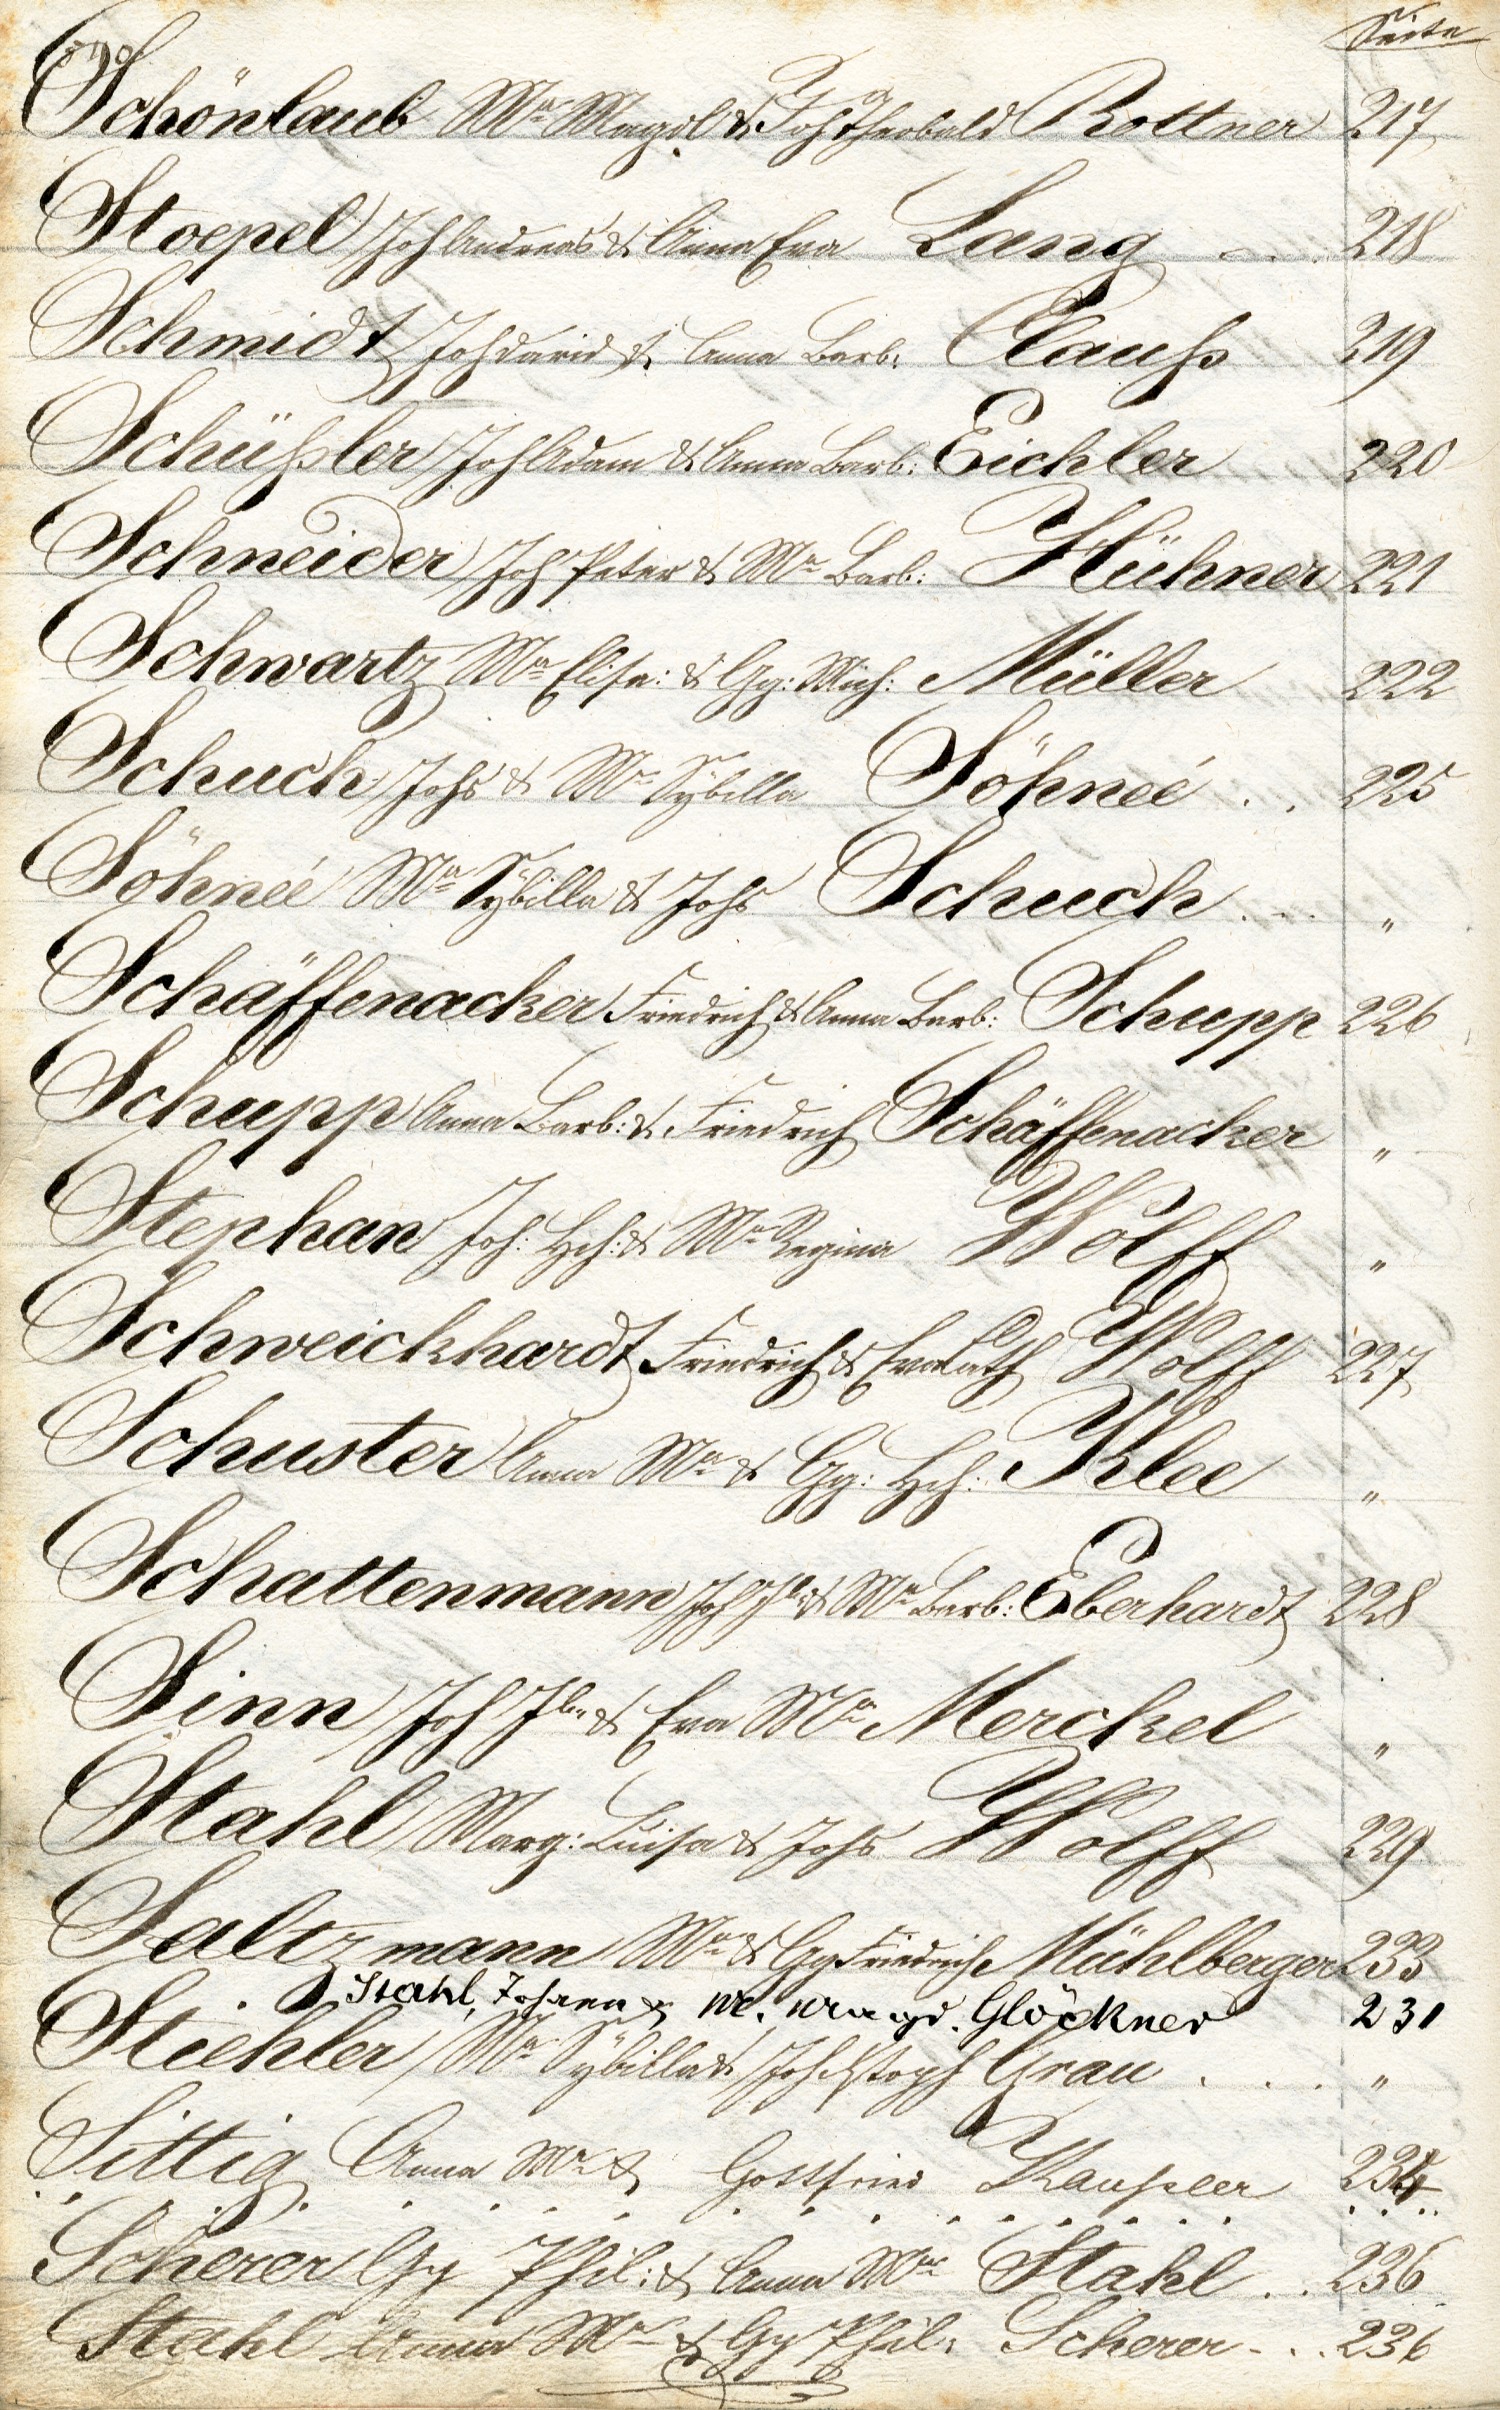 Seite
Schönlaub Ma Magd. & Joh Theobald Rottner 217
Stoepel Joh Andreas & Anna Eva Lang . . . 218
Schmidt Joh David & Anna Barb. Clauss 219
Schüssler Joh Adam & Anna Barb: Eichler 220
Schneider Joh Peter & Ma Barb: Hühner 221
Schwartz Ma Elisa: & Gg: Mich: Müller 222
Schuch Johs & Ma Sÿbilla Söhneé . . 225
Söhneé Ma Sÿbilla & Johs Schuch . . . "
Schäffenacker Friedrich & Anna Barb: Schupp 226
Schupp Anna Barb: & Friedrich Schäffenacker "
Stephan Joh: Hch: & Ma Regina Wolff "
Schweickhardt Friedrich & Eva Cath Wolff 227
Schuster Anna Ma & Gg: Hch: Klee "
Schattenmann Joh & Ma Barb: Eberhardt 228
Sinn Joh & Eva Ma Merckel "
Stahl Marg: Luisa & Johs Wolff 229
Saltzmann Ma & Gg Friedrich Mühlberger 233
Stahl, Johann & M. Magd. Glöckner 231
Stiehler Ma Sÿbilla & Joh Cstoph Grau . . . "
Sittig Anna Ma & Gottfried Kaussler 234
Scherer Gg Phil: & Anna Ma Stahl . . 236
Stahl Anna Ma & Gg Phil: Scherer . . . 236